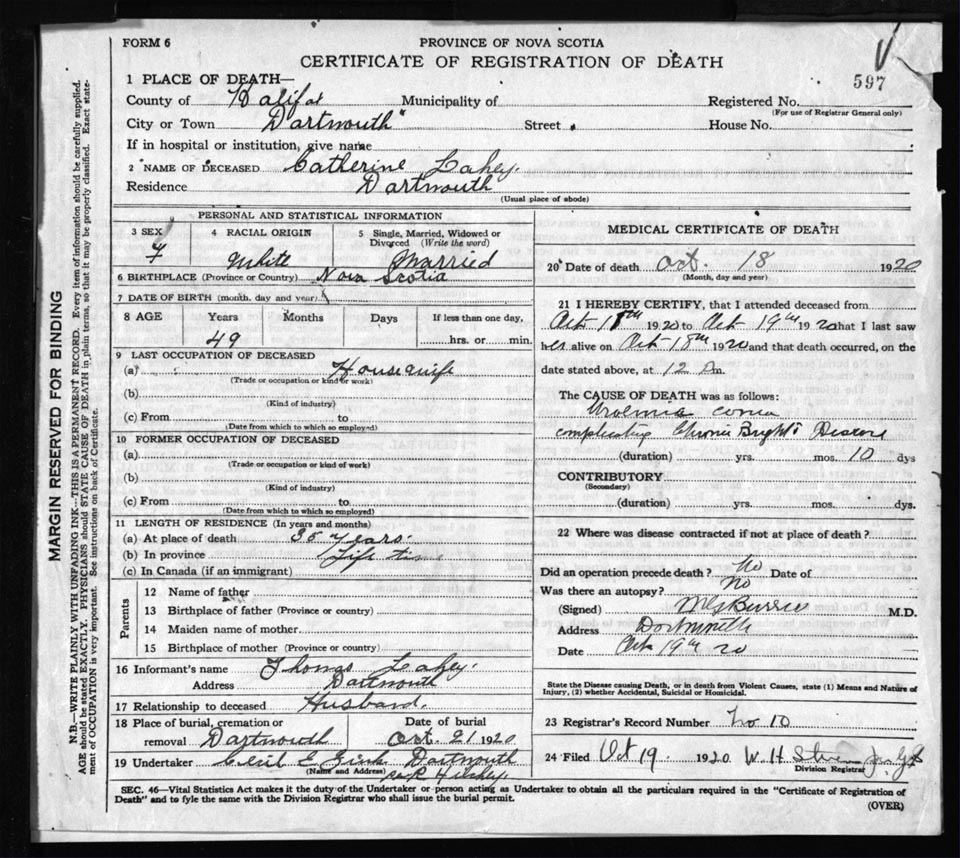 FORM 6
PROVINCE OF NOVA SCOTIA
CERTIFICATE OF REGISTRATION OF DEATH
597
1 PLACE OF DEATH—
County of Halifax Municipality of Registered No.
(For use of Registrar General only)
City or Town Dartmouth Street House No.
If in hospital or institution, give name
2 NAME OF DECEASED Catherine Lahey.
Residence Dartmouth
(Usual place of abode)
PERSONAL AND STATISTICAL INFORMATION
3 SEX 4 RACIAL ORIGIN 5 Single, Married, Widowed or Divorced (Write the word)
F White Married
6 BIRTHPLACE (Province or Country) Nova Scotia
7 DATE OF BIRTH (month, day and year)
8 AGE Years Months Days If less than one day,
49 hrs. or min.
9 LAST OCCUPATION OF DECEASED
(a) Housewife
(Trade or occupation or kind or work)
(b)
(Kind of industry)
(c) From to
(Date from which to which so employed)
10 FORMER OCCUPATION OF DECEASED
(a)
(Trade or occupation or kind of work)
(b)
(Kind of industry)
(c) From to
(Date from which to which so employed)
11 LENGTH OF RESIDENCE (In years and months)
(a) At place of death 35 years.
(b) In province Life time
(c) In Canada (if an immigrant)
Parents
12 Name of father
13 Birthplace of father (Province or country)
14 Maiden name of mother
15 Birthplace of mother (Province or country)
16 Informant's name Thomas Lahey.
Address Dartmouth
17 Relationship to deceased Husband.
18 Place of burial, cremation or Date of burial
removal Dartmouth Oct. 21 1920
19 Undertaker Cecil E Zink Dartmouth
(Name and Address)
MEDICAL CERTIFICATE OF DEATH
20 Date of death Oct. 18 1920
(Month, day and year)
21 I HEREBY CERTIFY, that I attended deceased from
Oct 18th 1920 to Oct 19th 1920 that I last saw
her alive on Oct 18th 1920 and that death occurred, on the
date stated above, at 12 m.
The CAUSE OF DEATH was as follows:
Uroemia coma
complicating Chronic Bright's Disease
(duration) yrs. mos. 10 dys
CONTRIBUTORY
(Secondary)
(duration) yrs. mos. dys.
22 Where was disease contracted if not at place of death?
Did an operation precede death? No Date of
Was there an autopsy? No
(Signed) M.D.
Address Dartmouth
Date Oct 19th 20
State the Disease causing Death, or in death from Violent Causes, state (1) Means and Nature of
Injury, (2) whether Accidental, Suicidal or Homicidal.
23 Registrar's Record Number No 10
24 Filed Oct 19. 1920 W. H
Division Registrar
SEC. 46—Vital Statistics Act makes it the duty of the Undertaker or person acting as Undertaker to obtain all the particulars required in the "Certificate of Registration of
Death" and to fyle the same with the Division Registrar who shall issue the burial permit.
(OVER)
MARGIN RESERVED FOR BINDING
N.B.—WRITE PLAINLY WITH UNFADING INK—THIS IS A PERMANENT RECORD. Every item of information should be carefully supplied.
AGE should be stated EXACTLY. PHYSICIANS should STATE CAUSE OF DEATH in plain terms, so that it may be properly classified. Exact state-
ment of OCCUPATION is very important. See instructions on back of Certificate.